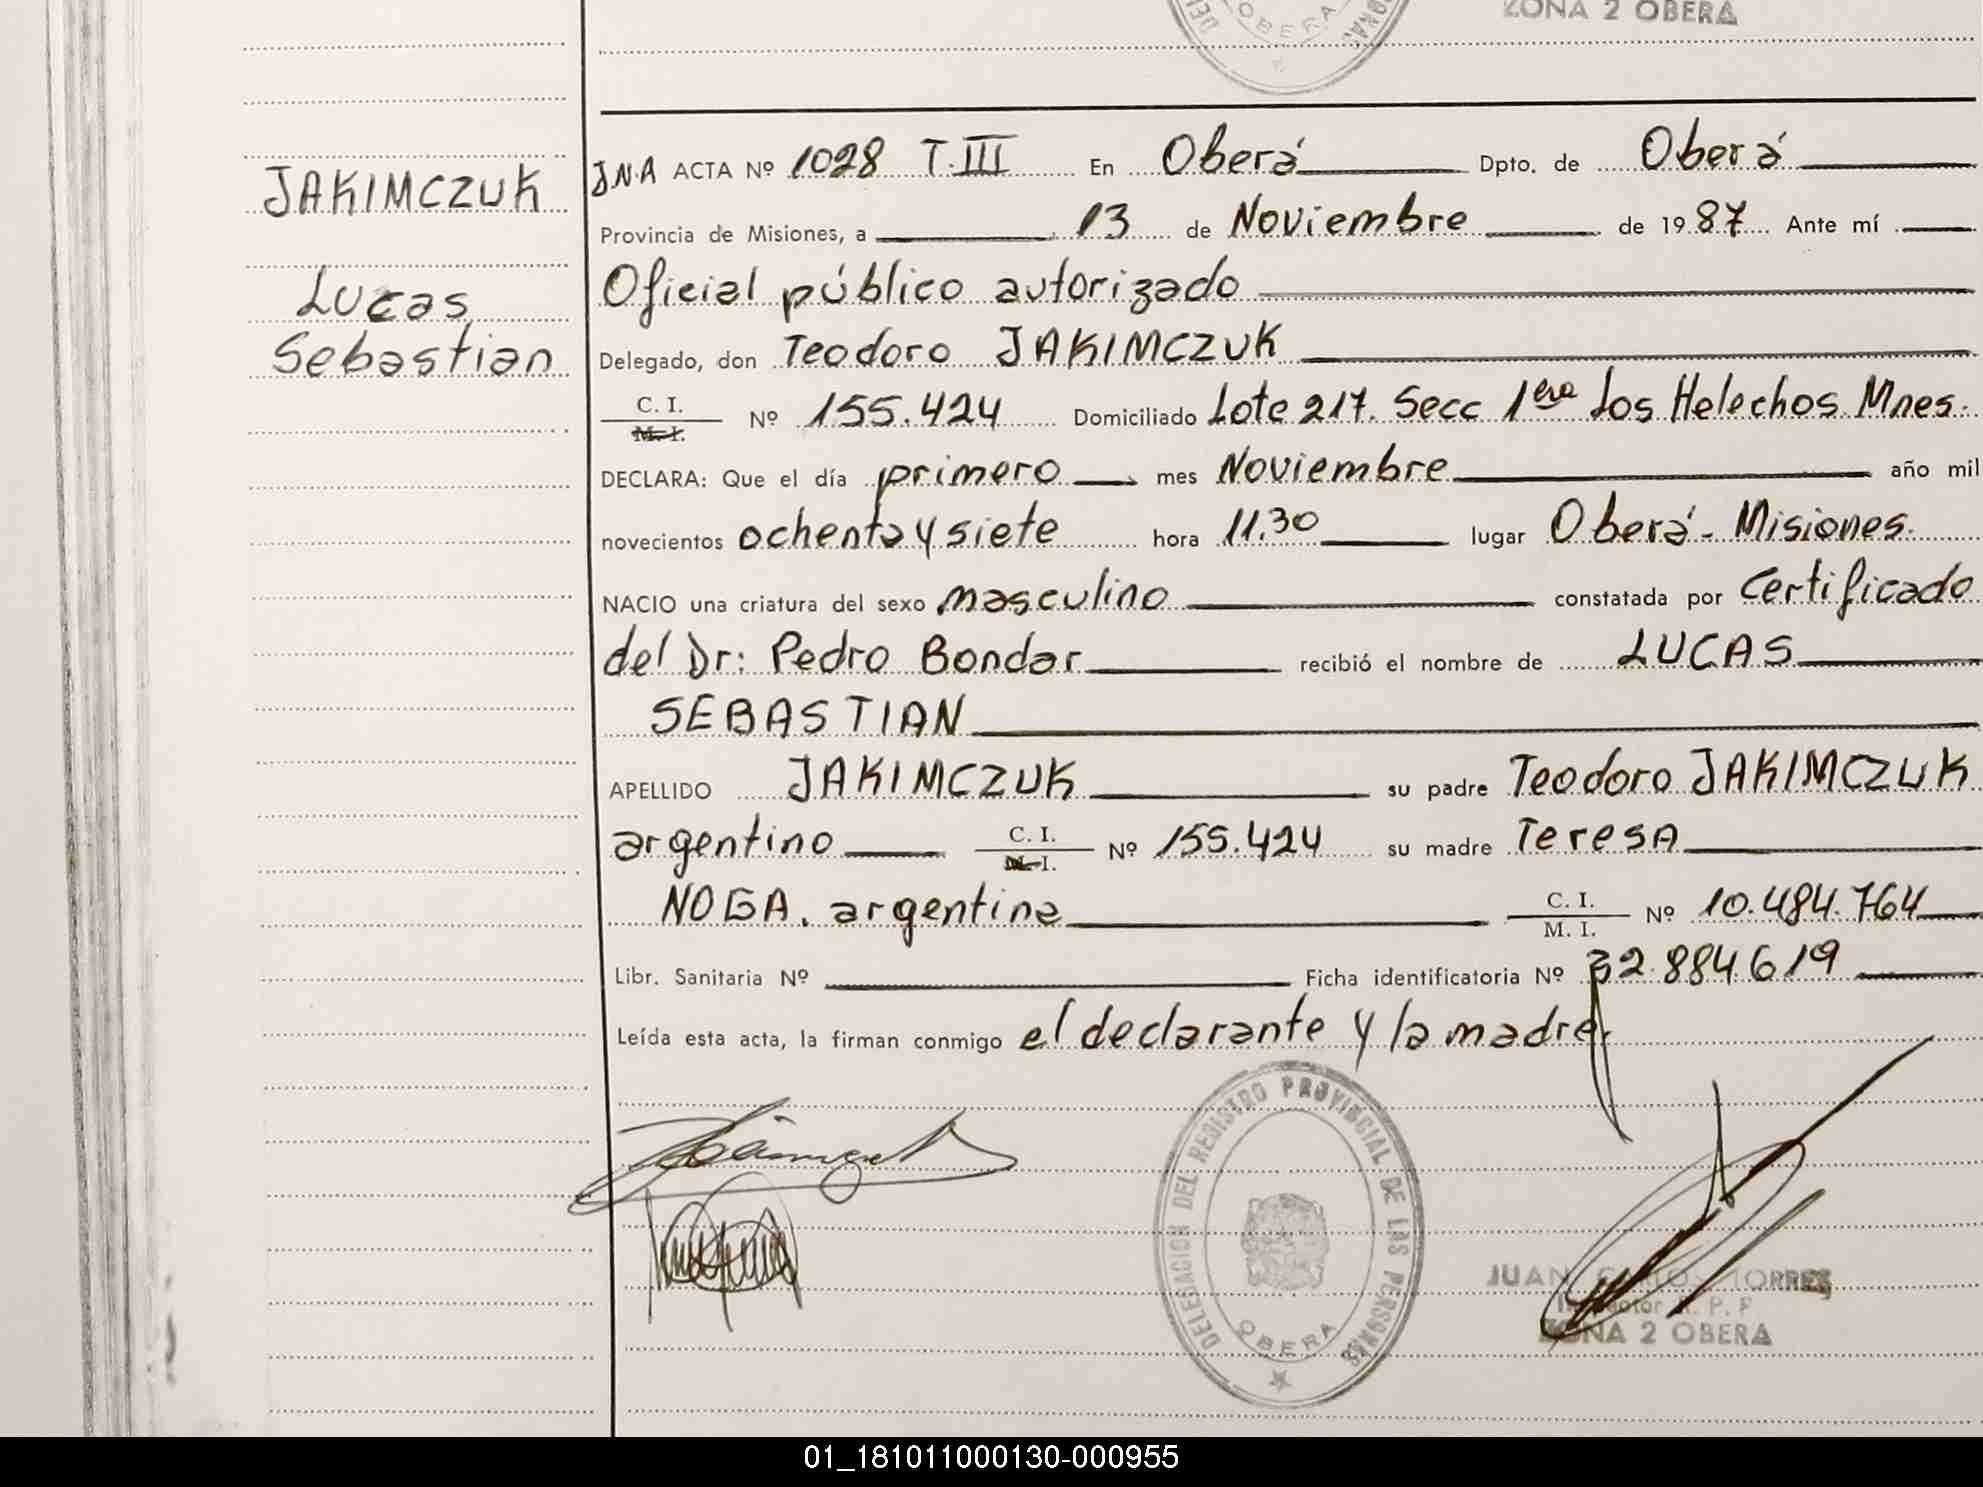 ZONA 2 OBERA
OBERA
JAKIMCZUK
Lucas
Sebastian
J.N.A ACTA Nº 1028 T.III En Oberá Dpto. de Oberá
Provincia de Misiones, a 13 de Noviembre de 1987 Ante mí
Oficial público autorizado
Delegado, don Teodoro JAKIMCZUK
C. I.
M. I. Nº 155.424 Domiciliado Lote 217. Secc 1era Los Helechos Mnes.
DECLARA: Que el día primero mes Noviembre año mil
novecientos ochenta y siete hora 11.30 lugar Oberá - Misiones.
NACIO una criatura del sexo masculino constatada por Certificado
del Dr: Pedro Bondar recibió el nombre de LUCAS
SEBASTIAN
APELLIDO JAKIMCZUK su padre Teodoro JAKIMCZUK
argentino C. I. M. I. Nº 155.424 su madre TeresA
NOGA. argentina C. I. M. I. Nº 10.484.764
Libr. Sanitaria Nº Ficha identificatoria Nº 32.884.619
Leída esta acta, la firman conmigo el declarante y la madre.
DELEGACION DEL REGISTRO PROVINCIAL DE LAS PERSONAS
OBERA
JUAN CARLOS TORRES
Inspector R. P. P
ZONA 2 OBERA
01_181011000130-000955